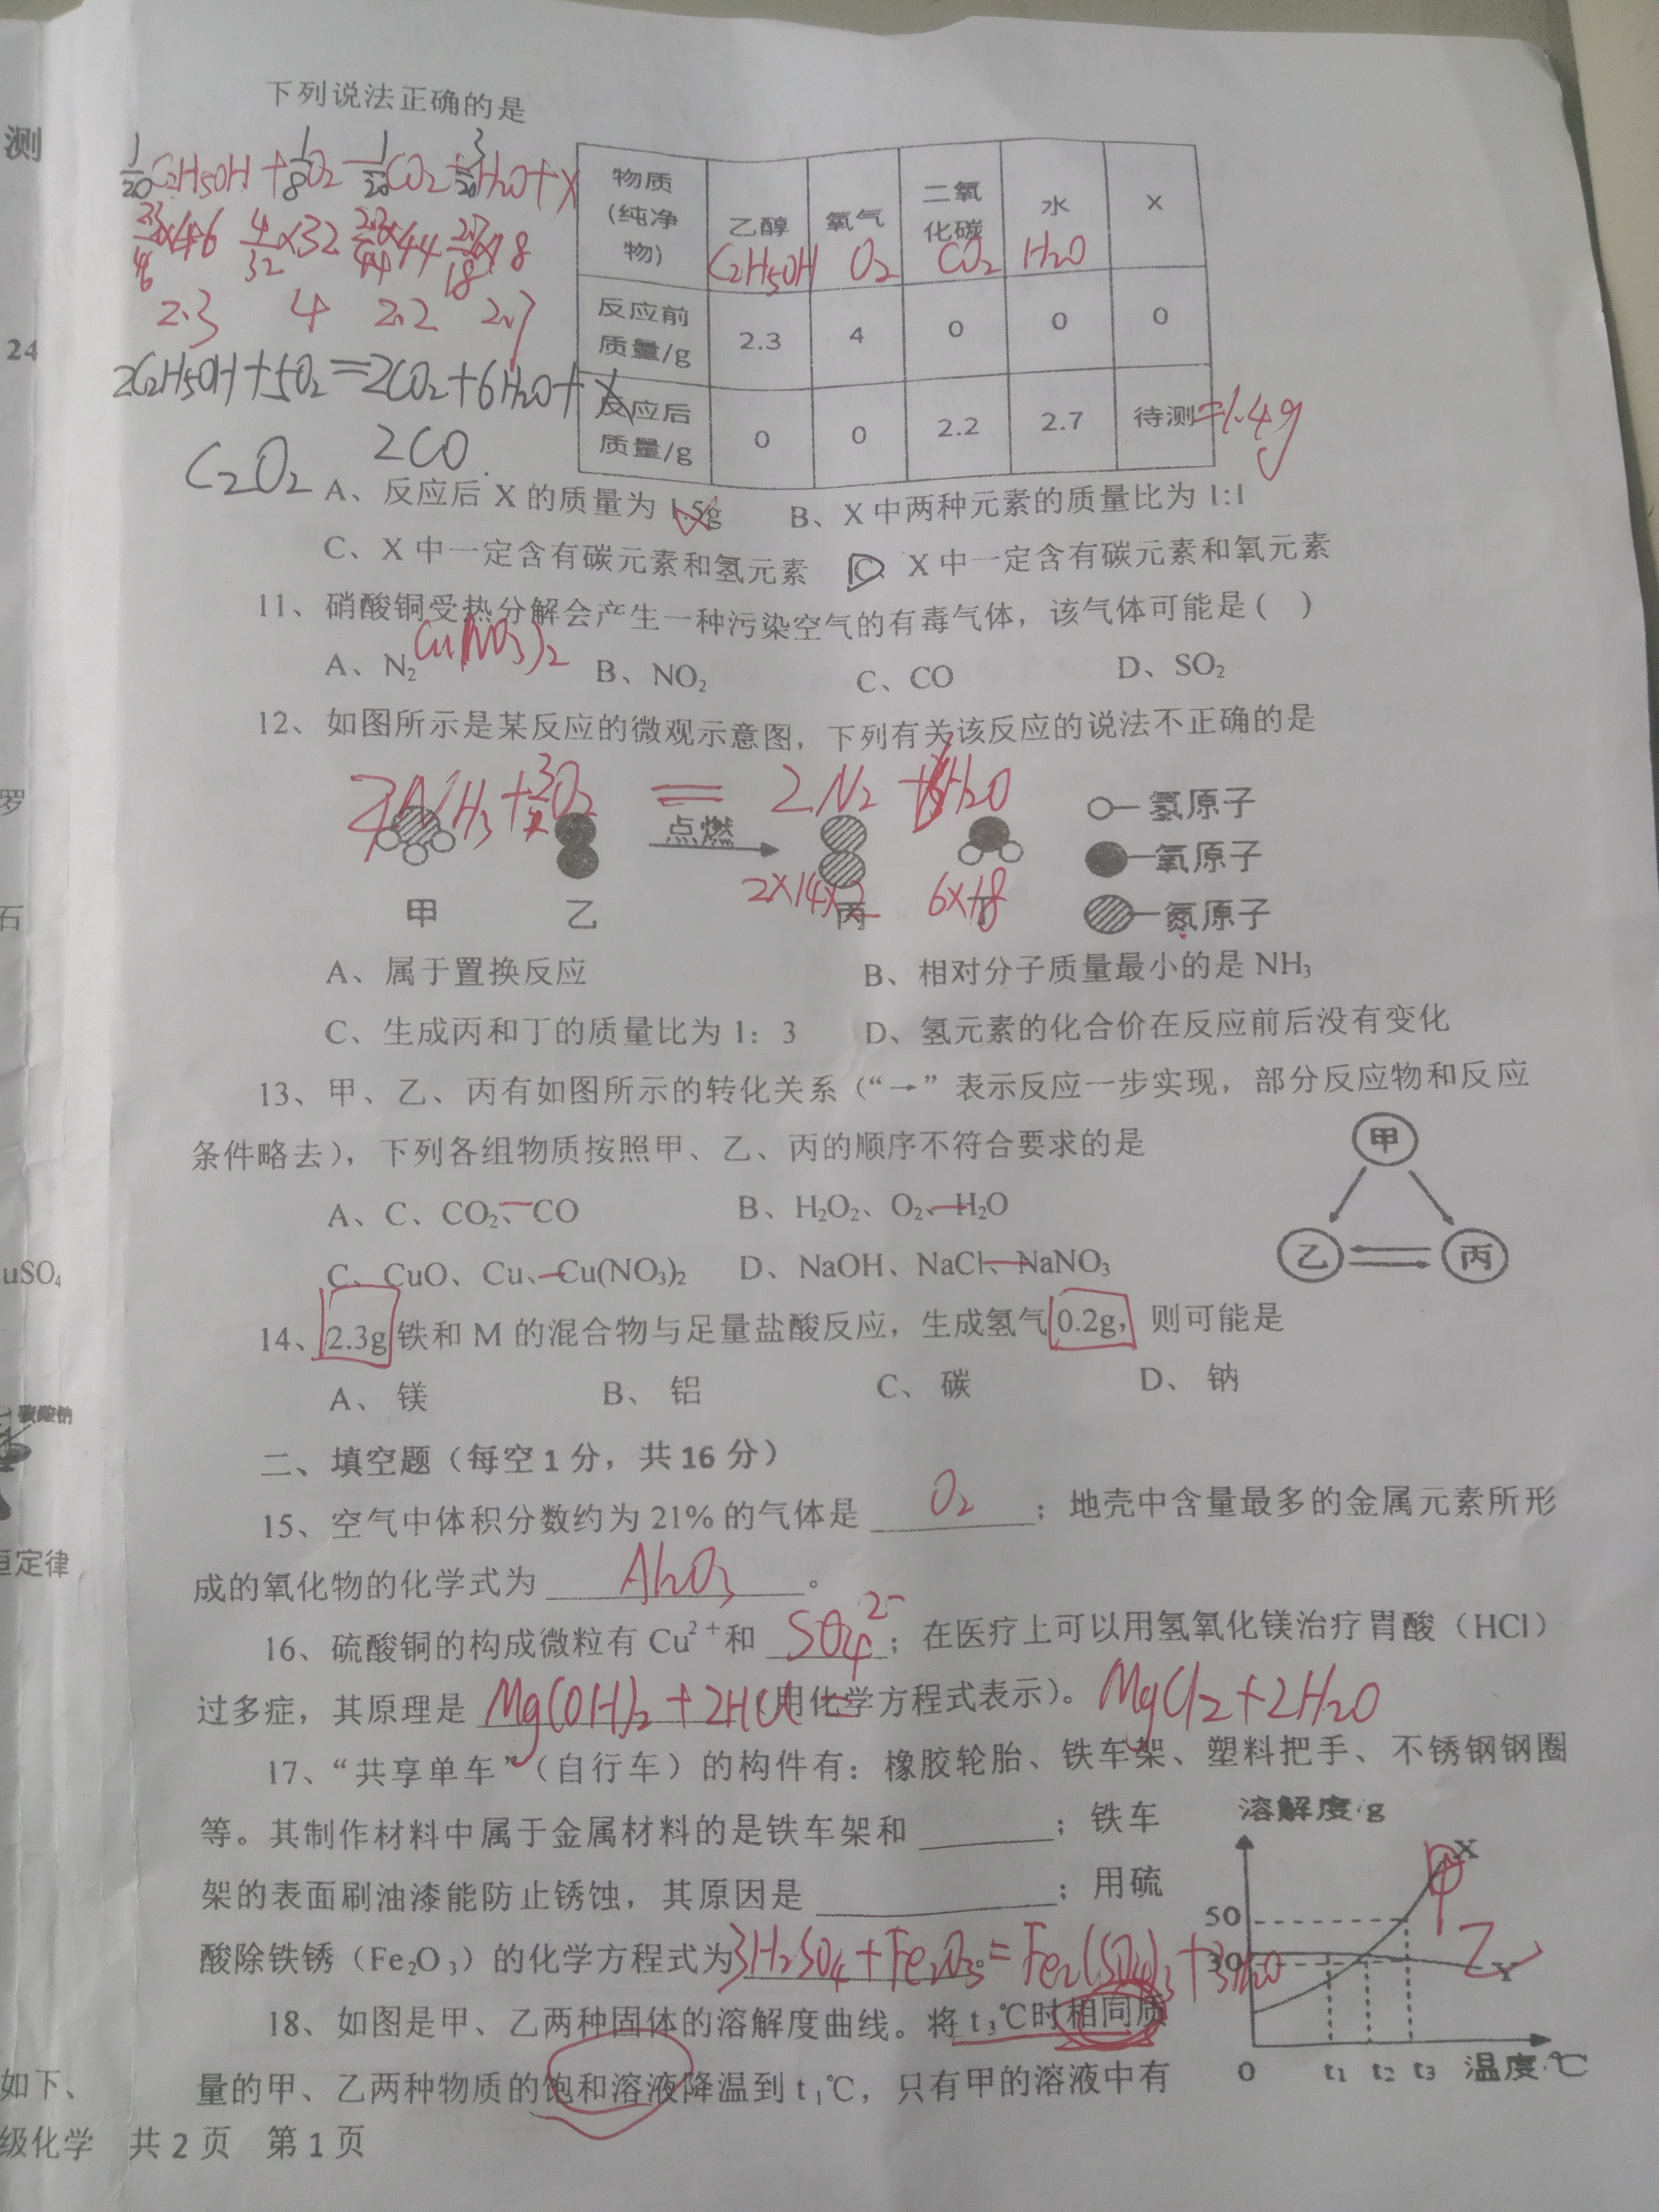 测
24
罗
石
uSO₄
碳酸钠
恒定律
如下、
下列说法正确的是
1/20 C2H5OH + 1/8 O2 — 1/20 CO2 + 3/20 H2O + X
2.3/46×46 4/32×32 2.2/44×44 2.7/18×18
2.3 4 2.2 2.7
2C2H5OH+5O2=2CO2+6H2O+X
C2O2 2CO
物质(纯净物) 乙醇 氧气 二氧化碳 水 X
C2H5OH O2 CO2 H2O
反应前质量/g 2.3 4 0 0 0
反应后质量/g 0 0 2.2 2.7 待测 =1.4g
A、反应后 X 的质量为 1.5g B、X 中两种元素的质量比为 1:1
C、X 中一定含有碳元素和氢元素 D、X 中一定含有碳元素和氧元素
11、硝酸铜受热分解会产生一种污染空气的有毒气体，该气体可能是( )
Cu(NO3)2
A、N₂ B、NO₂ C、CO D、SO₂
12、如图所示是某反应的微观示意图，下列有关该反应的说法不正确的是
2N2 H2O
点燃
○—氢原子
●—氧原子
—氮原子
2×14×2 6×18
甲 乙 丙
A、属于置换反应 B、相对分子质量最小的是 NH₃
C、生成丙和丁的质量比为 1：3 D、氢元素的化合价在反应前后没有变化
13、甲、乙、丙有如图所示的转化关系（“→”表示反应一步实现，部分反应物和反应
条件略去），下列各组物质按照甲、乙、丙的顺序不符合要求的是
A、C、CO₂、CO B、H₂O₂、O₂、H₂O
C、CuO、Cu、Cu(NO₃)₂ D、NaOH、NaCl、NaNO₃
甲
乙 丙
14、2.3g 铁和 M 的混合物与足量盐酸反应，生成氢气 0.2g，则可能是
A、镁 B、铝 C、碳 D、钠
二、填空题（每空 1 分，共 16 分）
15、空气中体积分数约为 21% 的气体是 O2 ；地壳中含量最多的金属元素所形
成的氧化物的化学式为 Al2O3 。
16、硫酸铜的构成微粒有 Cu²⁺和 SO4²⁻ ；在医疗上可以用氢氧化镁治疗胃酸（HCl）
过多症，其原理是 Mg(OH)2+2HCl = 用化学方程式表示）。 MgCl2+2H2O
17、“共享单车”（自行车）的构件有：橡胶轮胎、铁车架、塑料把手、不锈钢钢圈
等。其制作材料中属于金属材料的是铁车架和 ；铁车
架的表面刷油漆能防止锈蚀，其原因是 ；用硫
酸除铁锈（Fe₂O₃）的化学方程式为 3H2SO4+Fe2O3=Fe2(SO4)3+3H2O
溶解度/g
X 甲
50
30
Y 乙
0 t₁ t₂ t₃ 温度/℃
18、如图是甲、乙两种固体的溶解度曲线。将 t₃℃时相同质
量的甲、乙两种物质的饱和溶液降温到 t₁℃，只有甲的溶液中有
级化学 共 2 页 第 1 页